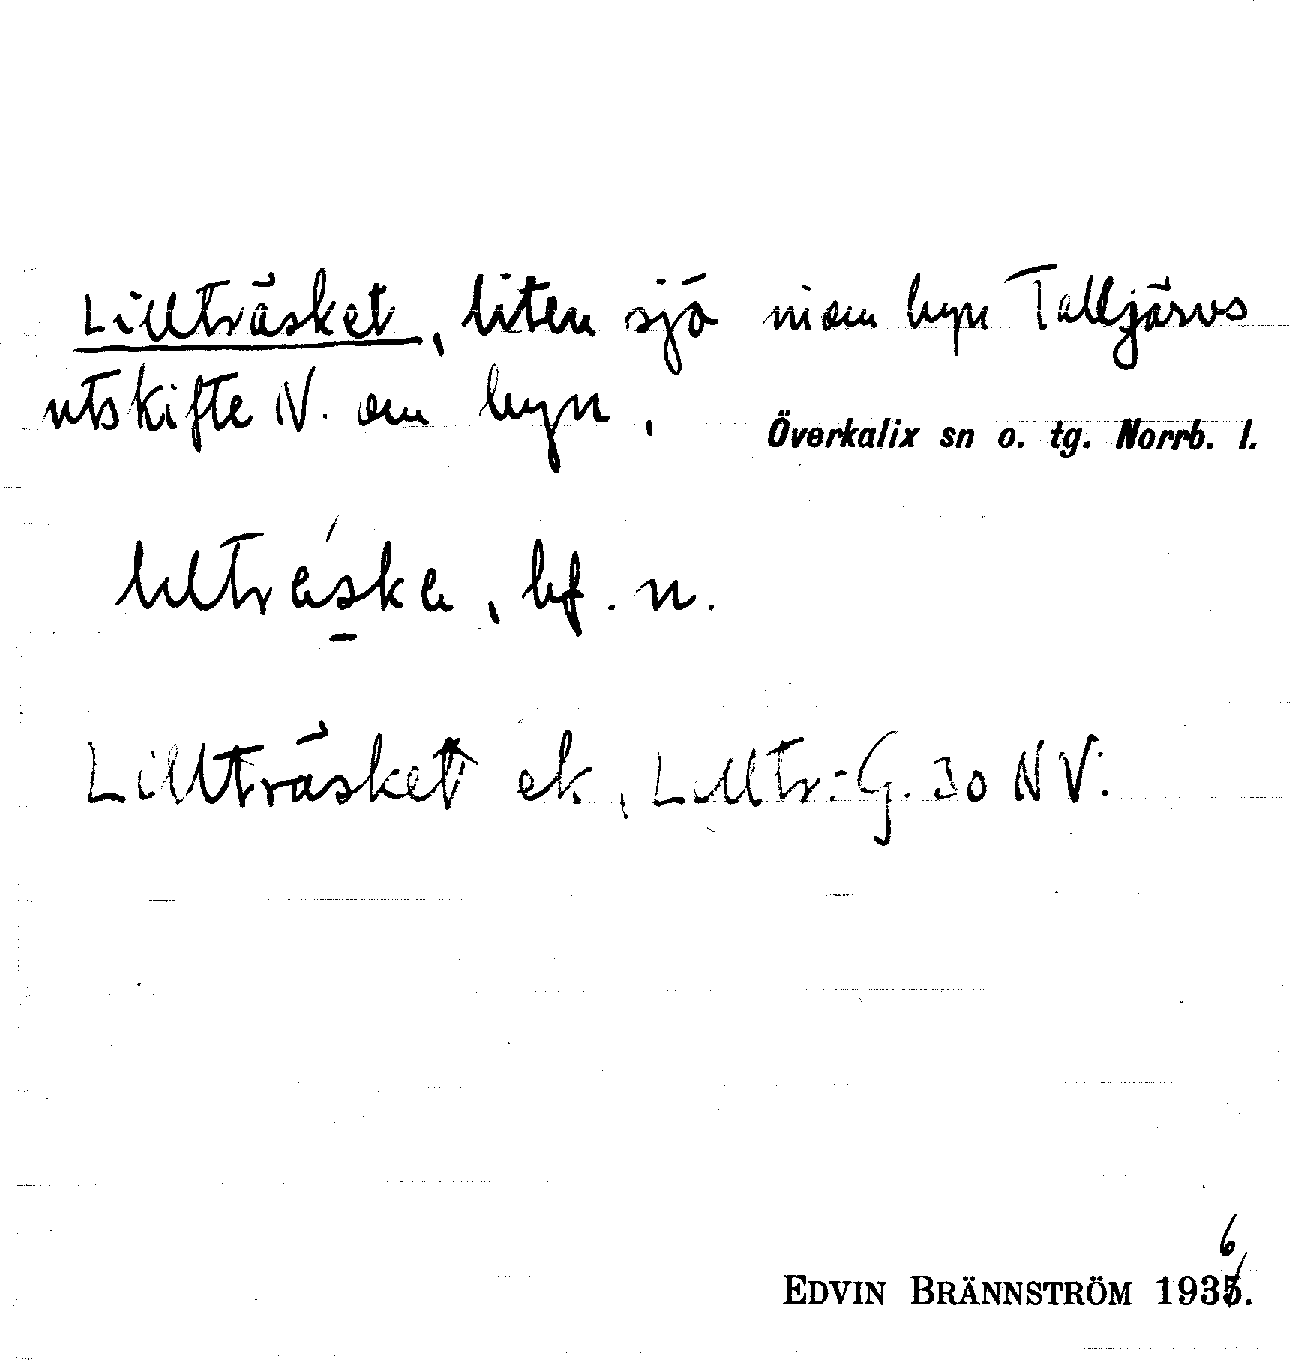 Lillträsket, liten sjö inom byn Talljärvs
utskifte N. om byn.
Överkalix sn o. tg. Norrb. l.
lilträska, bf. n.
Lillträsket ek, Lilltr. G. 30 NV.
6
EDVIN BRÄNNSTRÖM 1935.